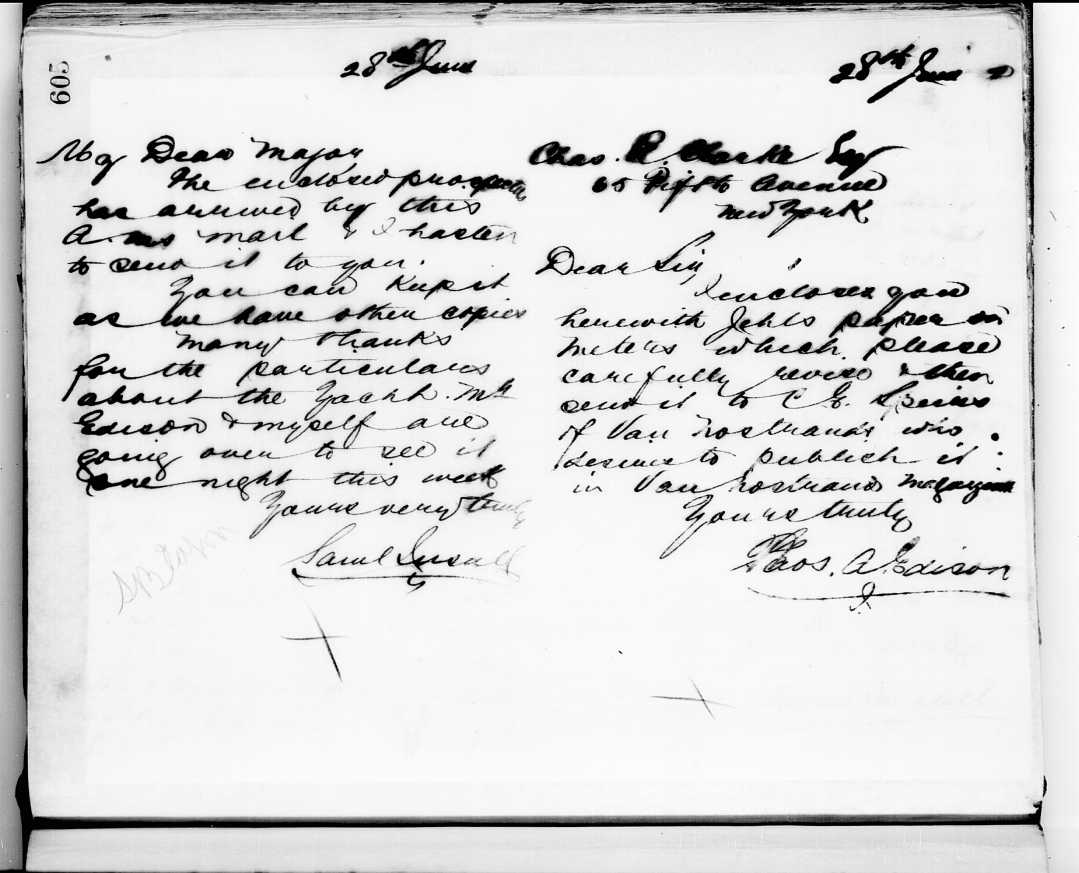 605
28th June
My Dear Major
The enclosed prospectus
has arrived by this
A.ms mail & I hasten
to send it to you.
You can keep it
as we have other copies
Many thanks
for the particulars
about the Yacht. Mr
Edison & myself are
going over to see it
one night this week
Yours very truly
Saml Insull
28th June
Chas. L. Clarke Esq
65 Fifth Avenue
New York
Dear Sir,
I enclose you
herewith Jehls paper on
meters which please
carefully revise & then
send it to C E. Speirs
of Van Nostrands who
desires to publish it
in Van Nostrands Magazine
Yours truly
Thos. A. Edison
I